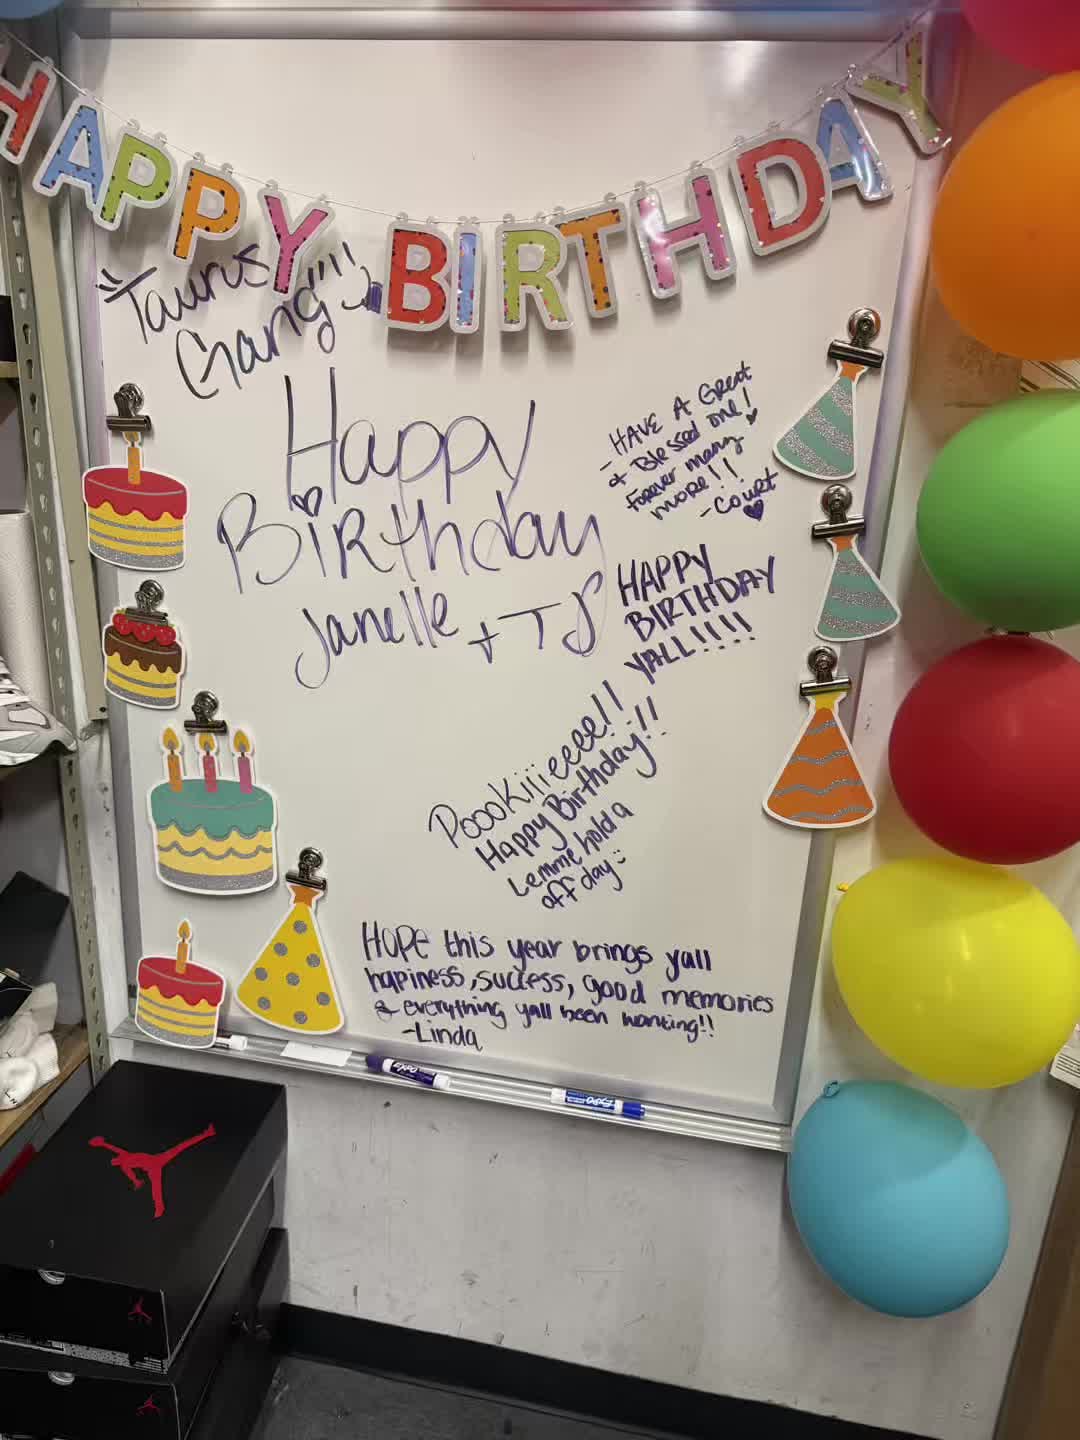 HAPPY BIRTHDAY
"Taurus
Gang!!!!
Happy
Birthday
Janelle + TJ
- HAVE A Great
& Blessed one!
Forever many
more!!
- Court
HAPPY
BIRTHDAY
YALL!!!!
PoooKiiieeee!!
Happy Birthday!!!
Lemme hold a
off day
HOPE this year brings yall
hapiness, success, good memories
& everything yall been wanting!!
-Linda
EXPO
EXPO